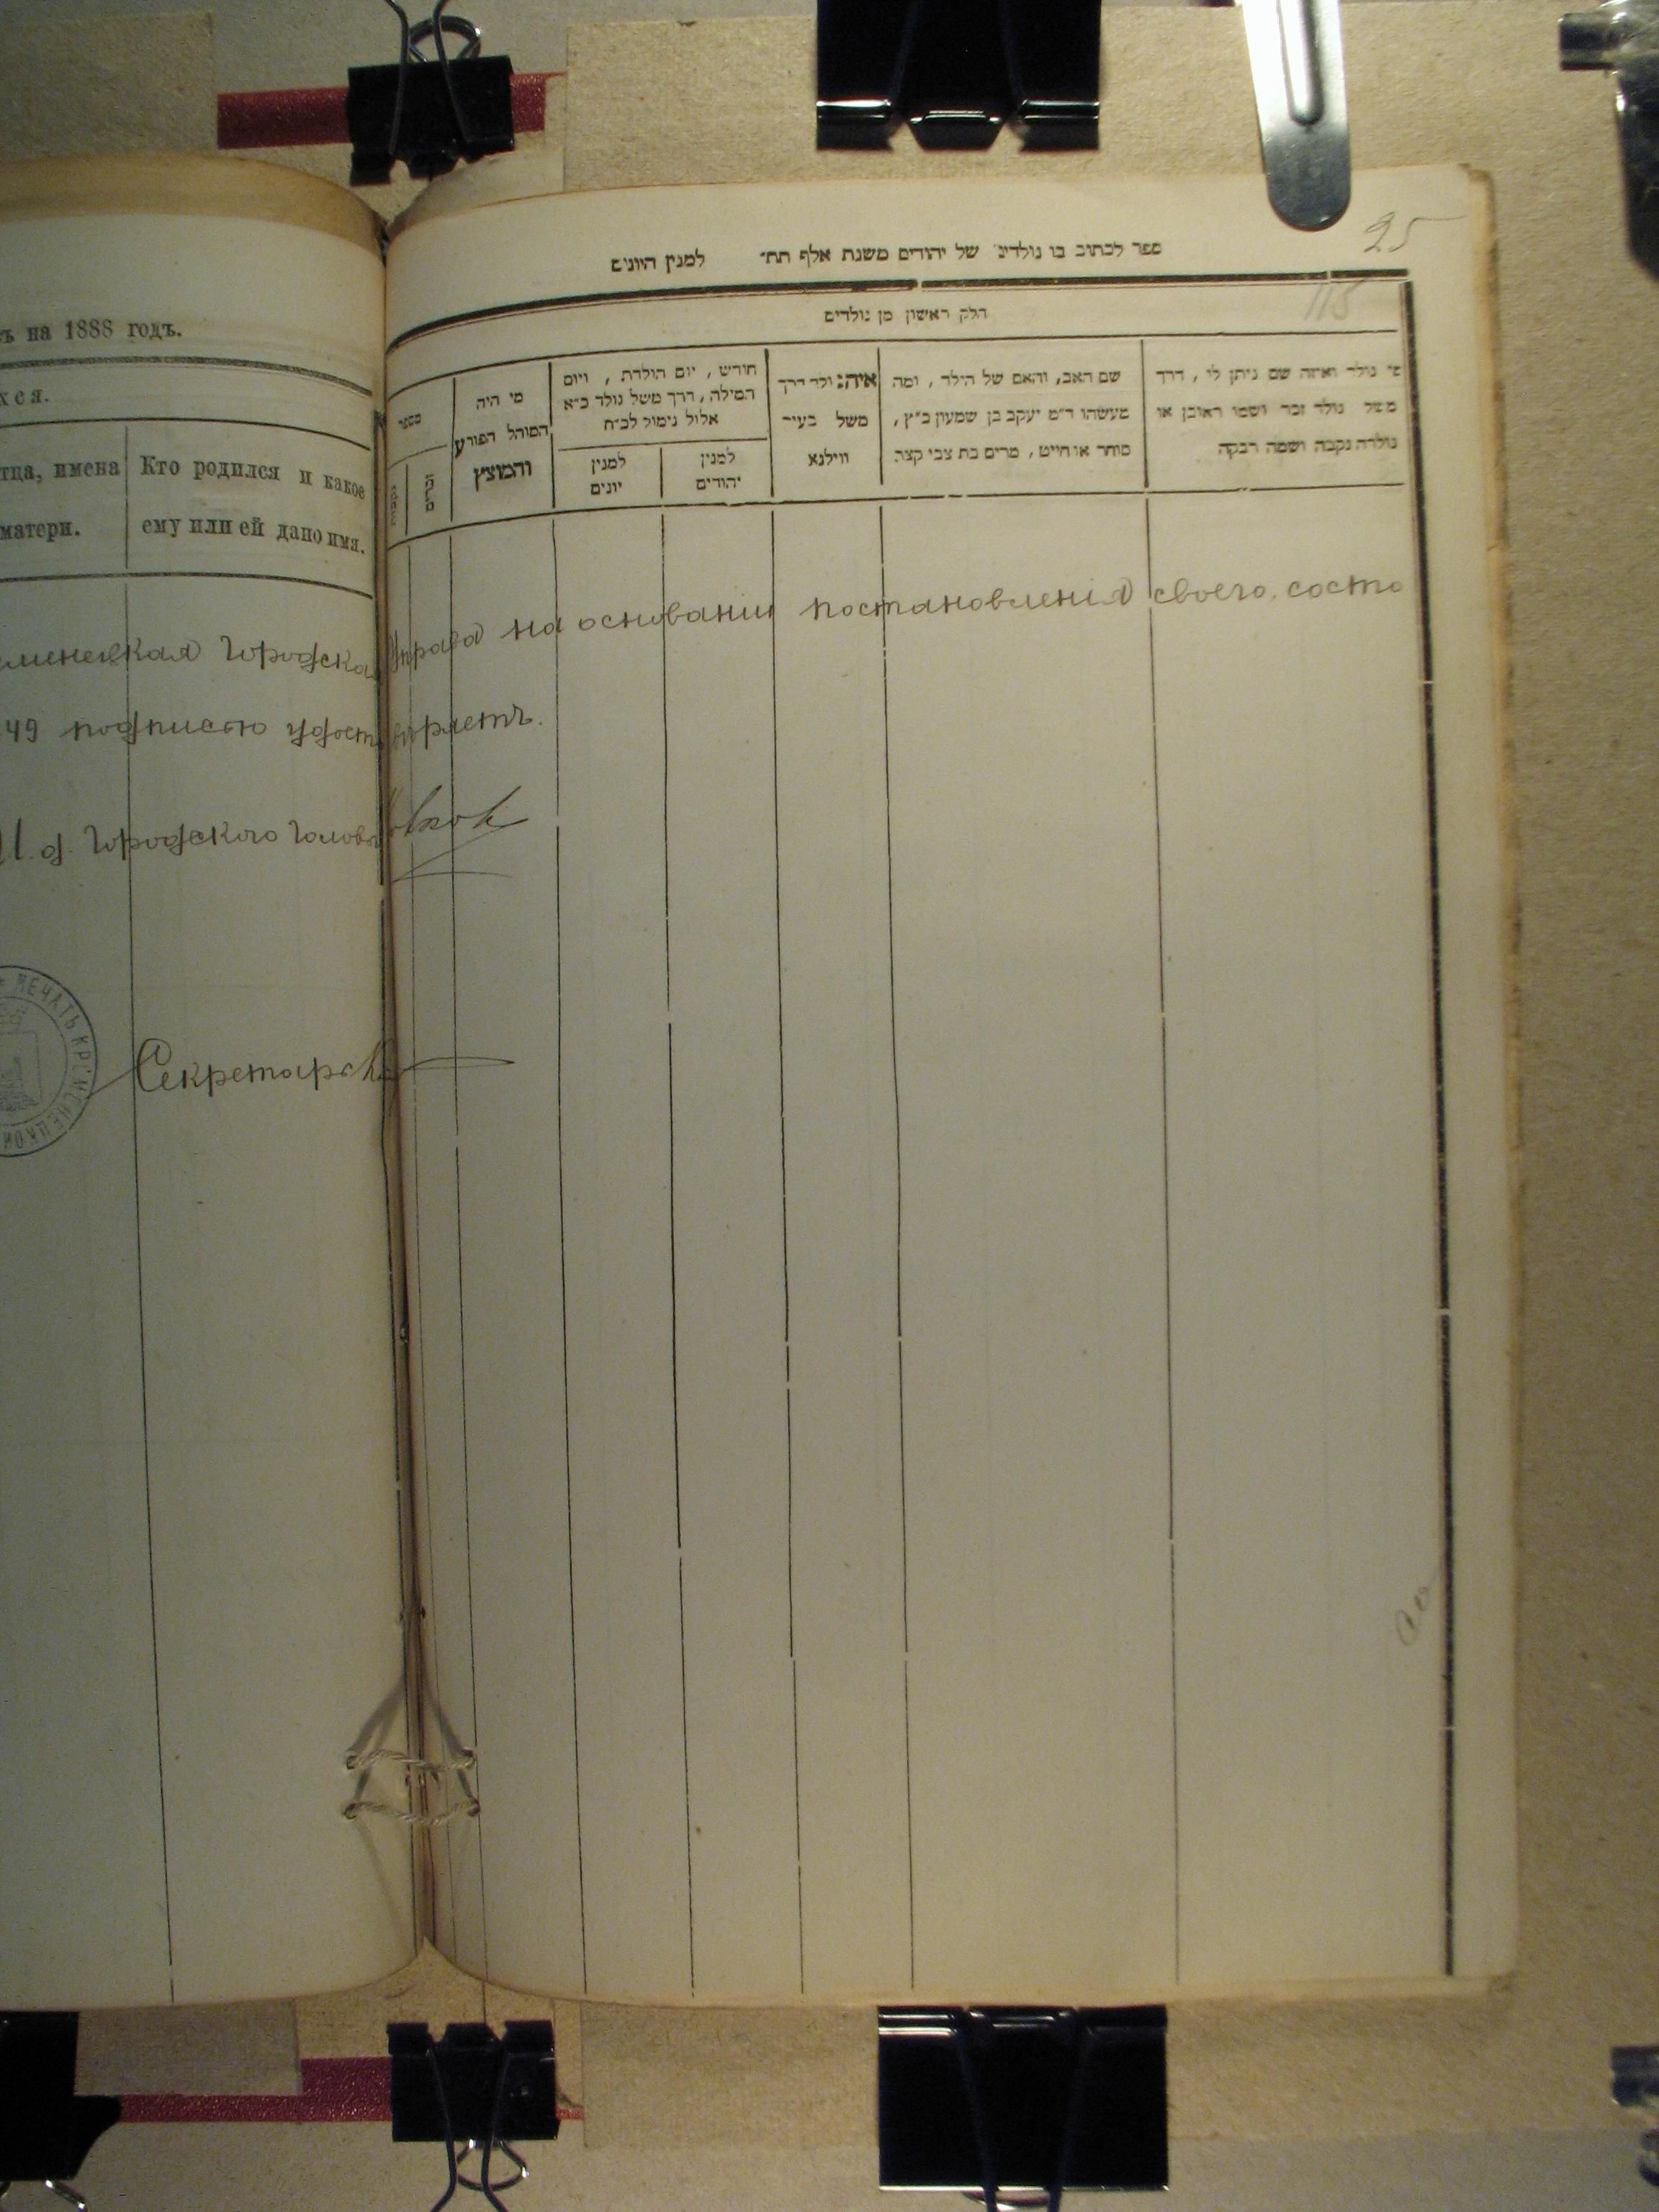 ъ на 1888 годъ.
хся.
тца, имена
матери.
Кто родился и какое
ему или ей дано имя.
25
115
ספר לכתוב בו נולדים של יהודים משנת אלף תת״ למנין היונים
חלק ראשון מן נולדים
מספר
זכרים
מי היה
המוהל הפורע
והמוצץ
חודש, יום הולדת, ויום
המילה, דרך משל נולד כ״א
אלול נימול לכ״ח
למנין
יונים
למנין
יהודים
איה: ולד דרך
משל בעיר
ווילנא
שם האב, והאם של הילד, ומה
מעשהו ד״מ יעקב בן שמעון כ״ץ,
סוחר או חייט, מרים בת צבי קצר
מי נולד ואיזה שם ניתן לו, דרך
משל נולד זכר ושמו ראובן או
נולדה נקבה ושמה רבקה
еменецкая Городская Управа на основании постановления своего, состо
49 подписью удостоверяетъ.
И. д. Городского Головы
Секретарь
ПЕЧАТЬ КРЕМЕНЕЦКОЙ